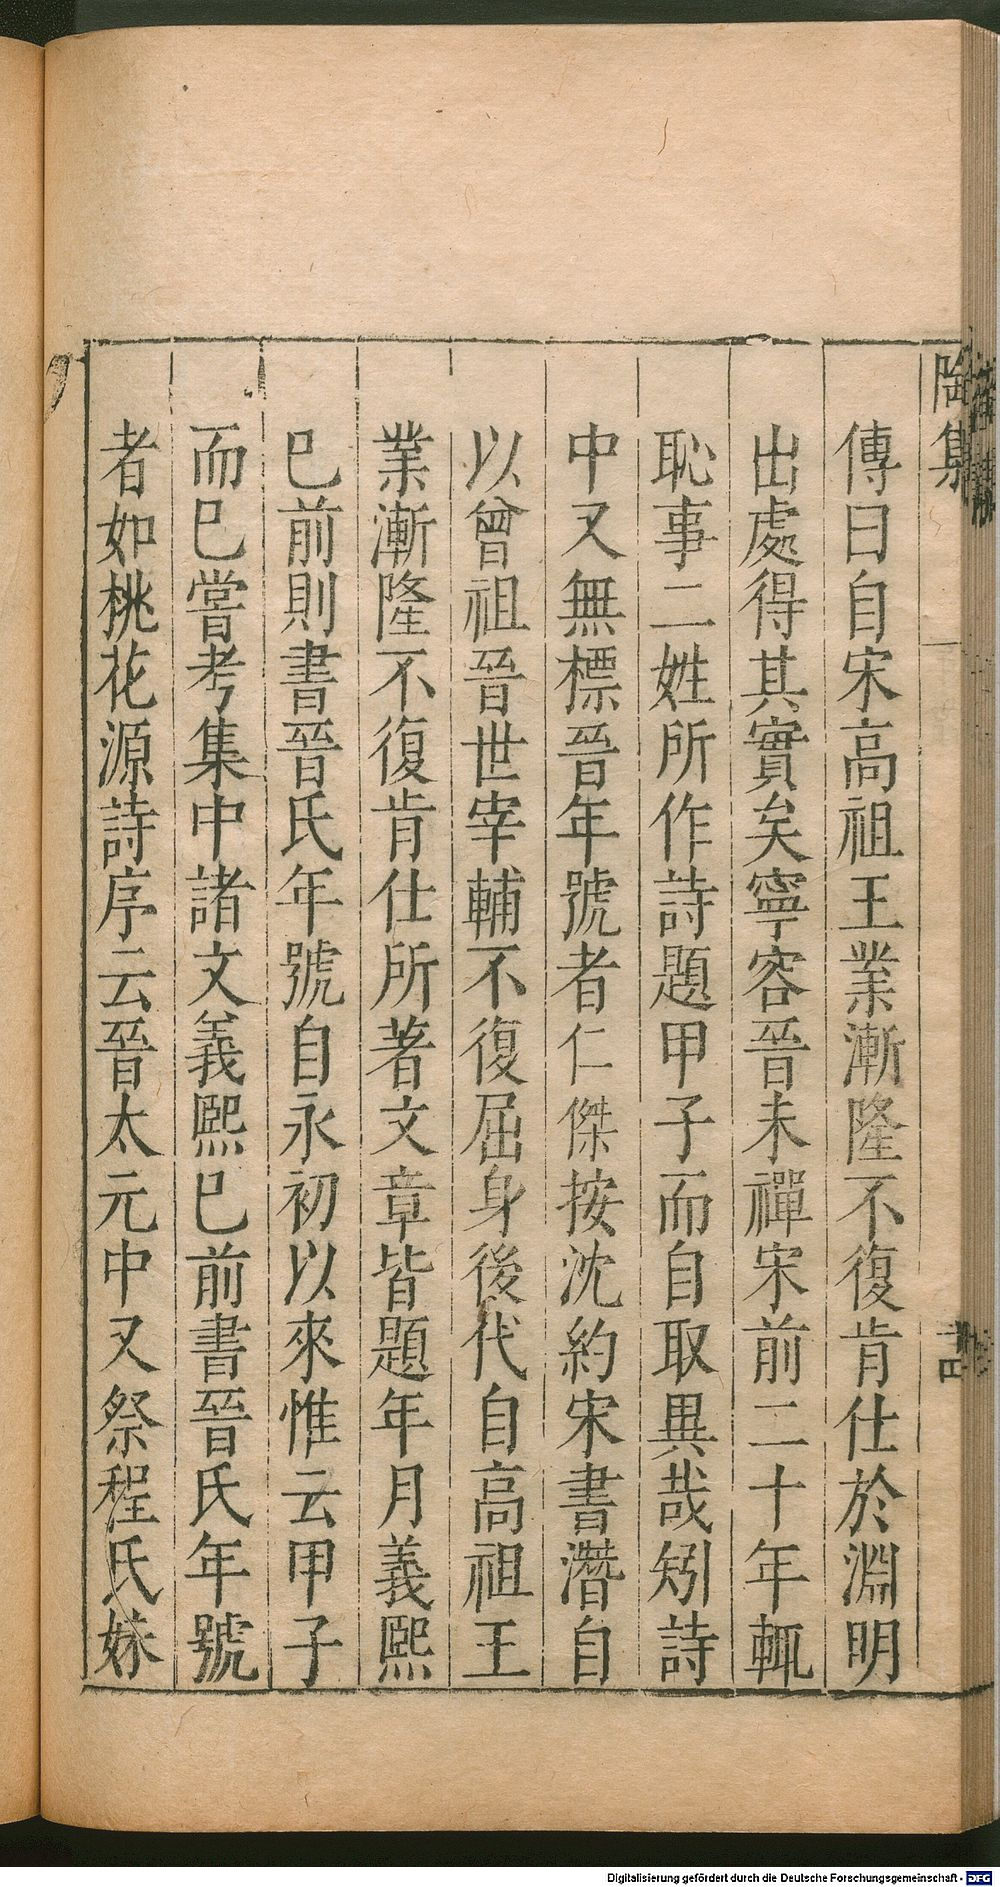 陶集
十四
傳曰自宋高祖王業漸隆不復肯仕於淵明
出處得其實矣寧容晉未禪宋前二十年輒
恥事二姓所作詩題甲子而自取異哉矧詩
中又無標晉年號者仁傑按沈約宋書潛自
以曾祖晉世宰輔不復屈身後代自高祖王
業漸隆不復肯仕所著文章皆題年月義熙
已前則書晉氏年號自永初以來惟云甲子
而已嘗考集中諸文義熙已前書晉氏年號
者如桃花源詩序云晉太元中又祭程氏妹
Digitalisierung gefördert durch die Deutsche Forschungsgemeinschaft - DFG